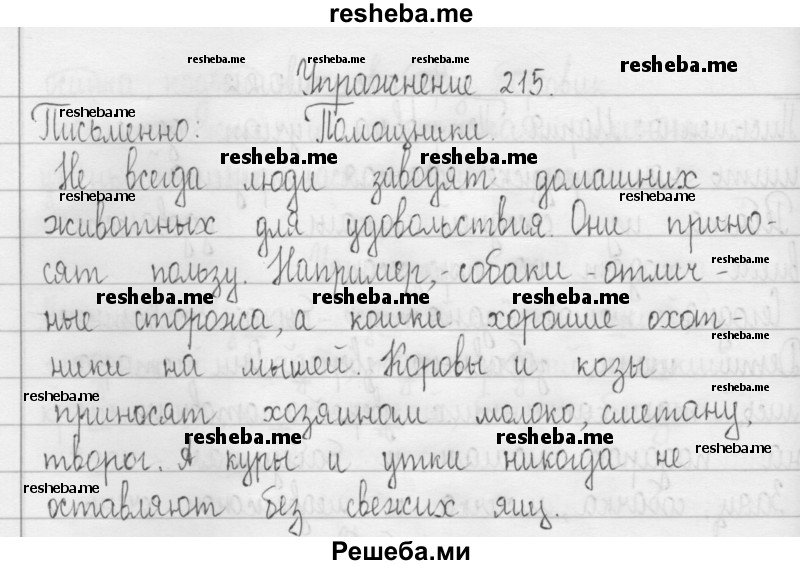 resheba.me
resheba.me resheba.me resheba.me
Упражнение 215. resheba.me
resheba.me
Письменно: Помощники.
resheba.me resheba.me
Не всегда люди заводят домашних
resheba.me resheba.me
животных для удовольствия. Они прино-
сят пользу. Например, - собаки - отлич-
resheba.me
resheba.me resheba.me resheba.me
ные сторожа, а кошки хорошие охот-
ники на мышей. Коровы и козы
resheba.me resheba.me
приносят хозяинам молоко, сметану,
resheba.me resheba.me resheba.me
творог. А куры и утки никогда не
resheba.me
оставляют без свежих яиц.
Решеба.ми